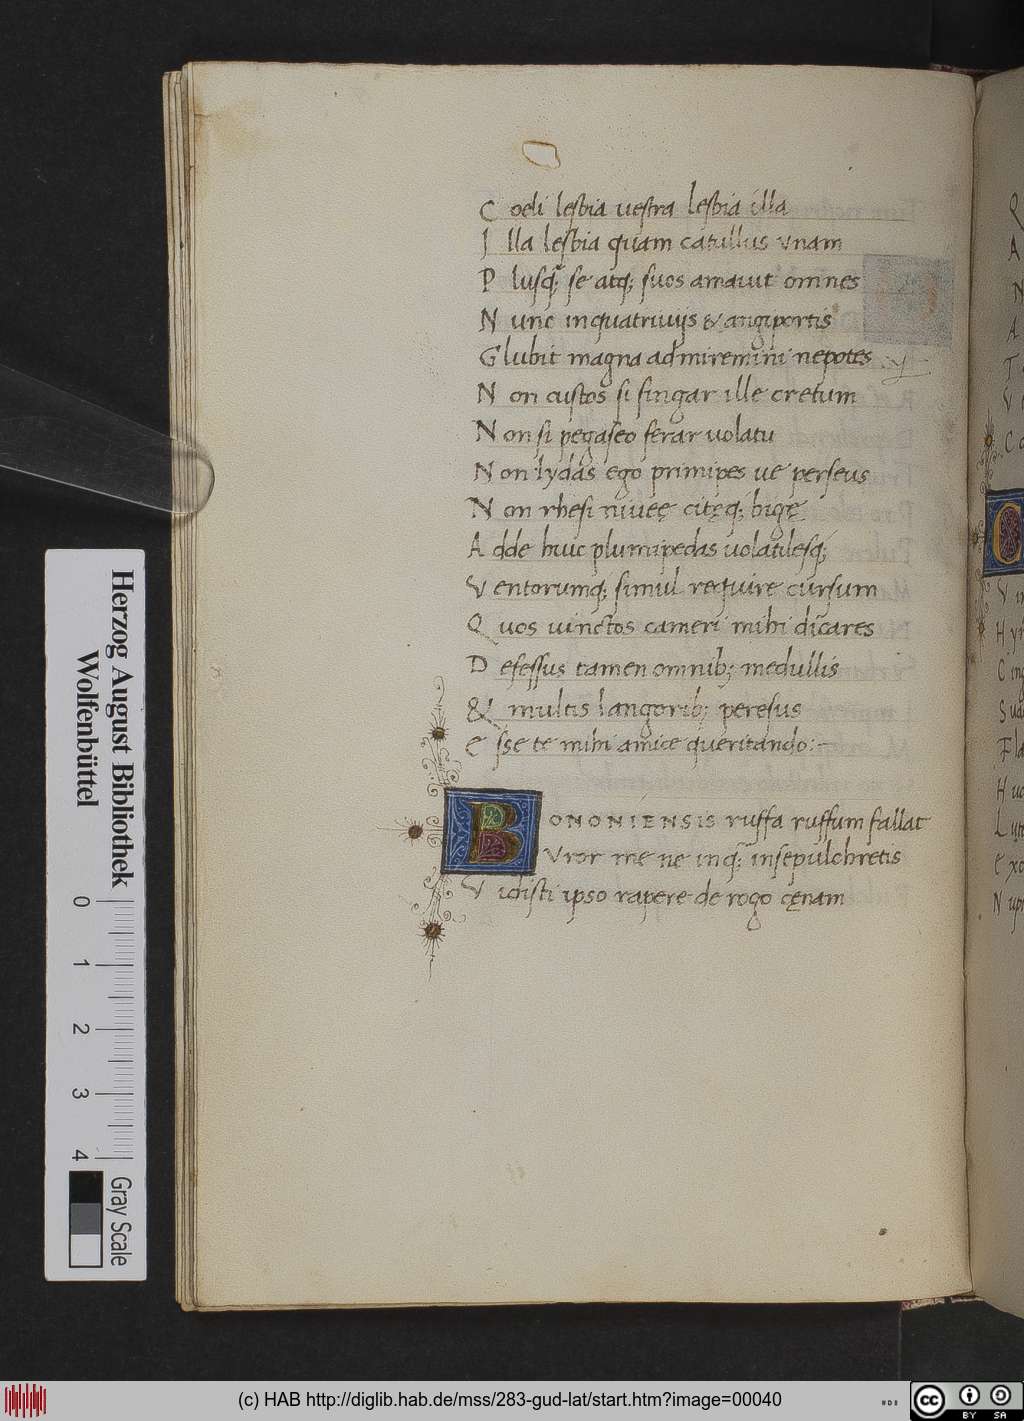 C oeli lesbia uestra lesbia illa
I lla lesbia quam catullus vnam
P lusq̃; se atq; suos amauit omnes
N unc in quatriuijs & angiportis
G lubit magna admiremini nepotes
N on custos si fingar ille cretum
N on si pegaseo ferar uolatu
N on lydas ego primipes ue perseus
N on rhesi niueę citęq; bigę
A dde huic plumipedas uolatilesq;
V entorumq; simul require cursum
Q uos uinctos cameri mihi dicares
D efessus tamen omnib; medullis
& multis langorib; peresus
E sse te mihi amice queritando:-
BONONIENSIS ruffa ruffum fallat
Vror me ne inq; in sepulchretis
V idisti ipso rapere de rogo cęnam
Herzog August Bibliothek
Wolfenbüttel
0 1 2 3 4
Gray Scale
(c) HAB http://diglib.hab.de/mss/283-gud-lat/start.htm?image=00040
cc BY SA